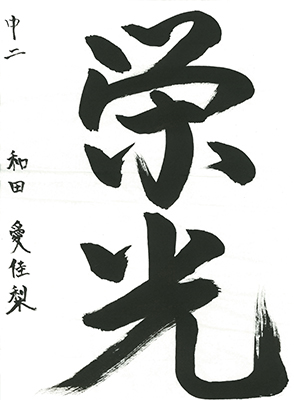 栄光
中二 和田 愛佳梨